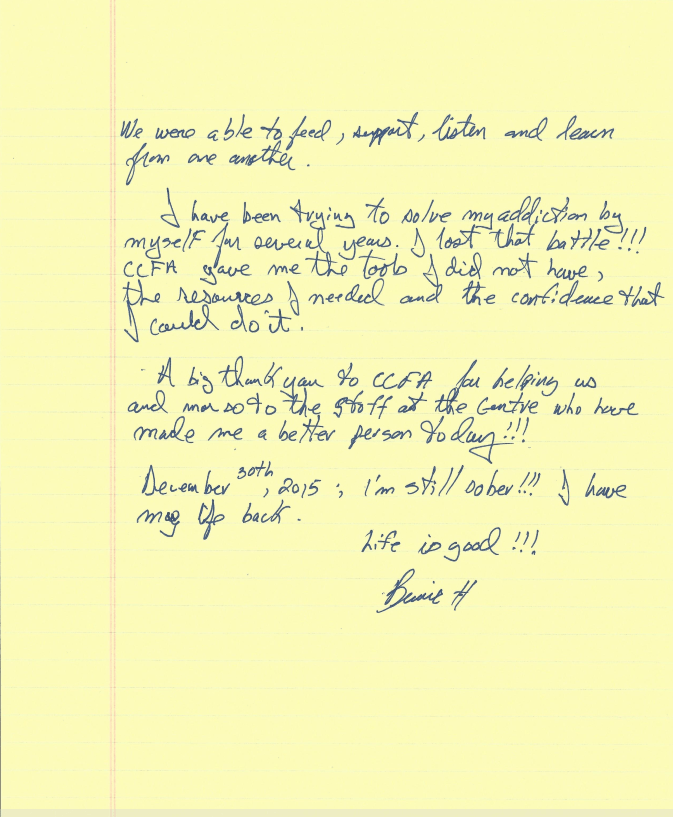 We were able to feed, support, listen and learn
from one another.
I have been trying to solve my addiction by
myself for several years. I lost that battle!!!
CCFA gave me the tools I did not have,
the resources I needed and the confidence that
I could do it.
A big thank you to CCFA for helping us
and more so to the staff at the Centre who have
made me a better person today!!!
December 30th, 2015; I'm still sober!!! I have
my life back.
Life is good!!!
Bernie H